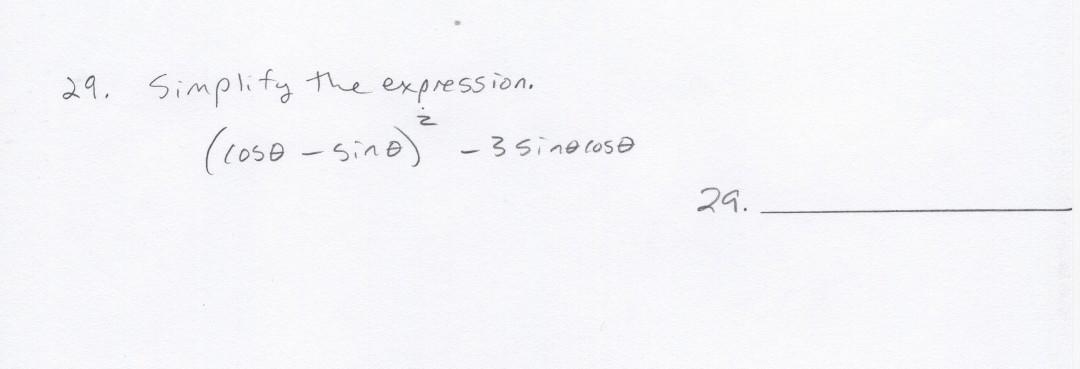 29. Simplify the expression.
(cosθ – sinθ)² – 3 sinθcosθ
29. ____________